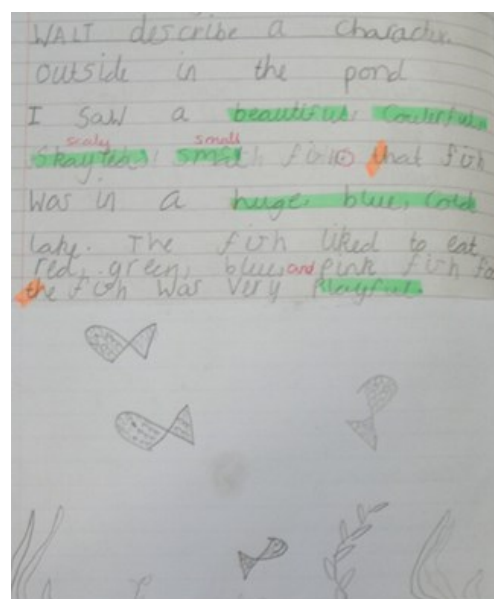 WALT describe a character.
outside in the pond
I saw a beautiful, coulerful,
scaly small
fish that fish
was in a huge, blue, cold
lake. The fish liked to eat
red, green, blue, and pink fish
the fish was very playful.